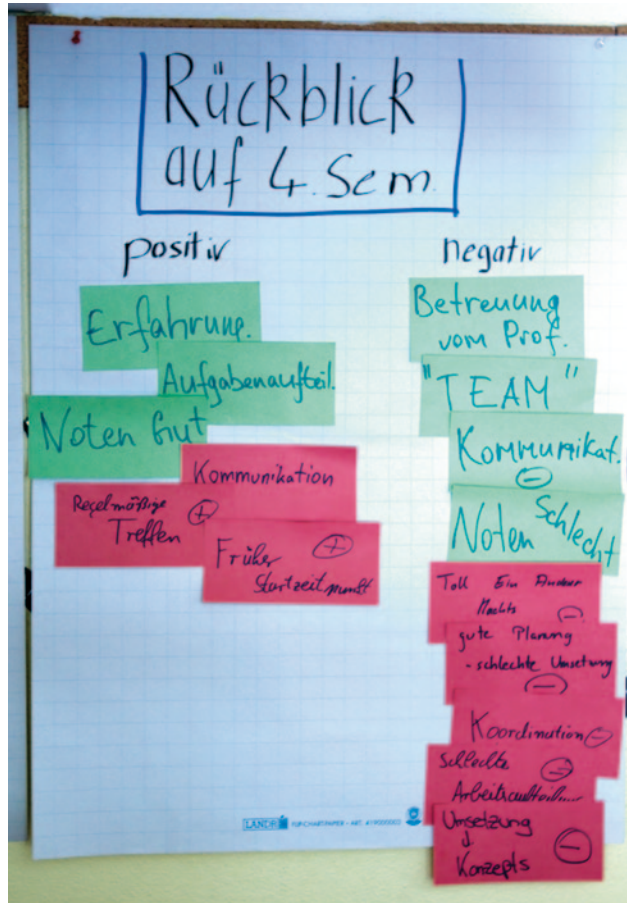 Rückblick
auf 4. Sem.
positiv
Erfahrung.
Aufgabenaufteil.
Noten Gut
Kommunikation
Regelmäßige
Treffen +
Früher +
Startzeitpunkt
negativ
Betreuung
vom Prof.
"TEAM"
Kommunikat.
-
Noten Schlecht
Toll Ein Anderer
Machts -
gute Planung
- schlechte Umsetzung
-
Koordination -
Schlechte -
Arbeitsaufteil....
Umsetzung
d.
Konzepts -
LANDRÉ FLIPCHARTPAPIER - ART.